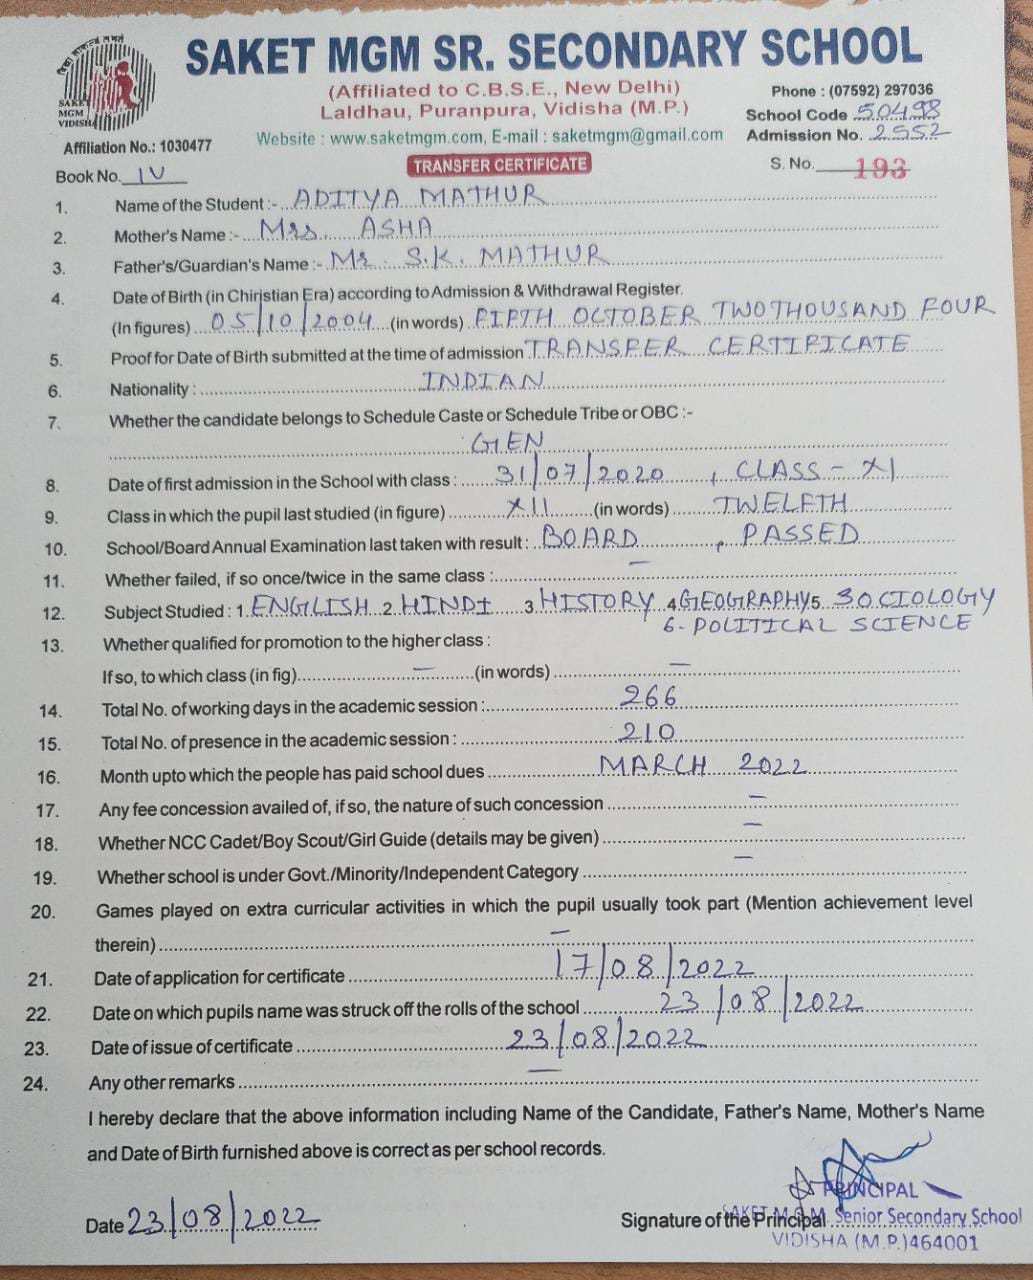 SAKET MGM SR. SECONDARY SCHOOL
(Affiliated to C.B.S.E., New Delhi)
Laldhau, Puranpura, Vidisha (M.P.)
Website : www.saketmgm.com, E-mail : saketmgm@gmail.com
SAKET
MGM
VIDISHA
Phone : (07592) 297036
School Code 50498
Admission No. 2552
Affiliation No.: 1030477
TRANSFER CERTIFICATE
Book No. IV
S. No. 193
1. Name of the Student :- ADITYA MATHUR
2. Mother's Name :- Mrs. ASHA
3. Father's/Guardian's Name :- Mr. S.K. MATHUR
4. Date of Birth (in Chiristian Era) according to Admission & Withdrawal Register.
(In figures) 05/10/2004 (in words) FIFTH OCTOBER TWO THOUSAND FOUR
5. Proof for Date of Birth submitted at the time of admission TRANSFER CERTIFICATE
6. Nationality : INDIAN
7. Whether the candidate belongs to Schedule Caste or Schedule Tribe or OBC :-
GEN
8. Date of first admission in the School with class : 31/07/2020, CLASS - XI
9. Class in which the pupil last studied (in figure) XII (in words) TWELFTH
10. School/Board Annual Examination last taken with result : BOARD, PASSED
11. Whether failed, if so once/twice in the same class : —
12. Subject Studied : 1. ENGLISH 2. HINDI 3. HISTORY 4 GEOGRAPHY 5. SOCIOLOGY
6- POLITICAL SCIENCE
13. Whether qualified for promotion to the higher class :
If so, to which class (in fig) — (in words) —
14. Total No. of working days in the academic session : 266
15. Total No. of presence in the academic session : 210
16. Month upto which the people has paid school dues MARCH 2022
17. Any fee concession availed of, if so, the nature of such concession —
18. Whether NCC Cadet/Boy Scout/Girl Guide (details may be given) —
19. Whether school is under Govt./Minority/Independent Category —
20. Games played on extra curricular activities in which the pupil usually took part (Mention achievement level
therein) —
21. Date of application for certificate 17/08/2022
22. Date on which pupils name was struck off the rolls of the school 23/08/2022
23. Date of issue of certificate 23/08/2022
24. Any other remarks —
I hereby declare that the above information including Name of the Candidate, Father's Name, Mother's Name
and Date of Birth furnished above is correct as per school records.
Date 23/08/2022
PRINCIPAL
Signature of the Principal
SAKET M.G.M. Senior Secondary School
VIDISHA (M.P.) 464001